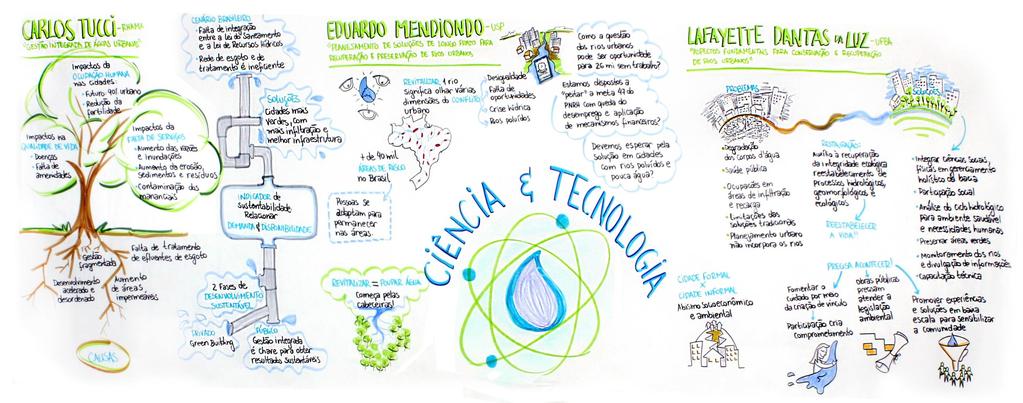 CARLOS TUCCI-RHAMA
"GESTÃO INTEGRADA DE ÁGUAS URBANAS"
Impactos da
OCUPAÇÃO HUMANA
nas cidades:
• Futuro 90% urbano
• Redução da
fertilidade
Impactos na
QUALIDADE DE VIDA
• Doenças
• Falta de
amenidades
Impactos da
FALTA DE SERVIÇOS
• Aumento das vazões
e inundações
• Aumento da erosão,
sedimentos e resíduos
• Contaminação dos
mananciais
Gestão
fragmentada
Falta de tratamento
de efluentes de esgoto
Desenvolvimento
acelerado e
desordenado
Aumento
de áreas
impermeáveis
CAUSAS
CENÁRIO BRASILEIRO
• Falta de integração
entre a lei do saneamento
e a lei de Recursos Hídricos
• Rede de esgoto e de
tratamento é ineficiente
SOLUÇÕES
Cidades mais
verdes, com
mais infiltração e
melhor infraestrutura
INDICADOR de
sustentabilidade
Relacionar
DEMANDA & DISPONIBILIDADE
2 Fases de
DESENVOLVIMENTO
SUSTENTÁVEL
PRIVADO
Green Building
PÚBLICO
Gestão integrada
é chave para obter
resultados sustentáveis
EDUARDO MENDIONDO-USP
"PLANEJAMENTO DE SOLUÇÕES DE LONGO PRAZO PARA
RECUPERAÇÃO E PRESERVAÇÃO DE RIOS URBANOS"
REVITALIZAR 1 rio
significa olhar várias
dimensões do CONFLITO
urbano
• Desigualdade
• Falta de
oportunidades
• Crise hídrica
• Rios poluídos
+ de 40 mil
ÁREAS DE RISCO
no Brasil
Pessoas se
adaptam para
permanecer
nas áreas.
REVITALIZAR = POUPAR ÁGUA
Começa pelas
cabeceiras!
Como a questão
dos rios urbanos
pode ser oportunidade
para 26 mi sem trabalho?
Estamos dispostos a
"peitar" a meta 43 do
PNRH com queda do
desemprego e aplicação
de mecanismos financeiros?
Devemos esperar pela
solução em cidades
com rios poluídos e
pouca água?
CIÊNCIA & TECNOLOGIA
LAFAYETTE DANTAS DA LUZ-UFBA
"ASPECTOS FUNDAMENTAIS PARA CONSERVAÇÃO E RECUPERAÇÃO
DE RIOS URBANOS"
PROBLEMAS
• Degradação
dos corpos d'água
• Saúde pública
• Ocupações em
áreas de infiltração
e recarga
• Limitações das
soluções tradicionais
• Planejamento urbano
não incorpora os rios
CIDADE FORMAL
X
CIDADE INFORMAL
Abismo socioeconômico
e ambiental
RESTAURAÇÃO:
Auxílio à recuperação
da integridade ecológica
reestabelecimento de
processos hidrológicos,
geomorfológicos e
ecológicos
"REESTABELECER
A VIDA"
PRECISA ACONTECER!
Fomentar o
cuidado por meio
da criação de vínculo
Participação cria
comprometimento
obras públicas
precisam
atender a
legislação
ambiental
SOLUÇÕES
• Integrar ciências sociais,
físicas em gerenciamento
holístico da bacia
• Participação social
• Análise do ciclo hidrológico
para ambiente saudável
e necessidades humanas
• Preservar áreas verdes
• Monitoramento dos rios
e divulgação de informações
• Capacitação técnica
Promover experiências
e soluções em baixa
escala para sensibilizar
a comunidade